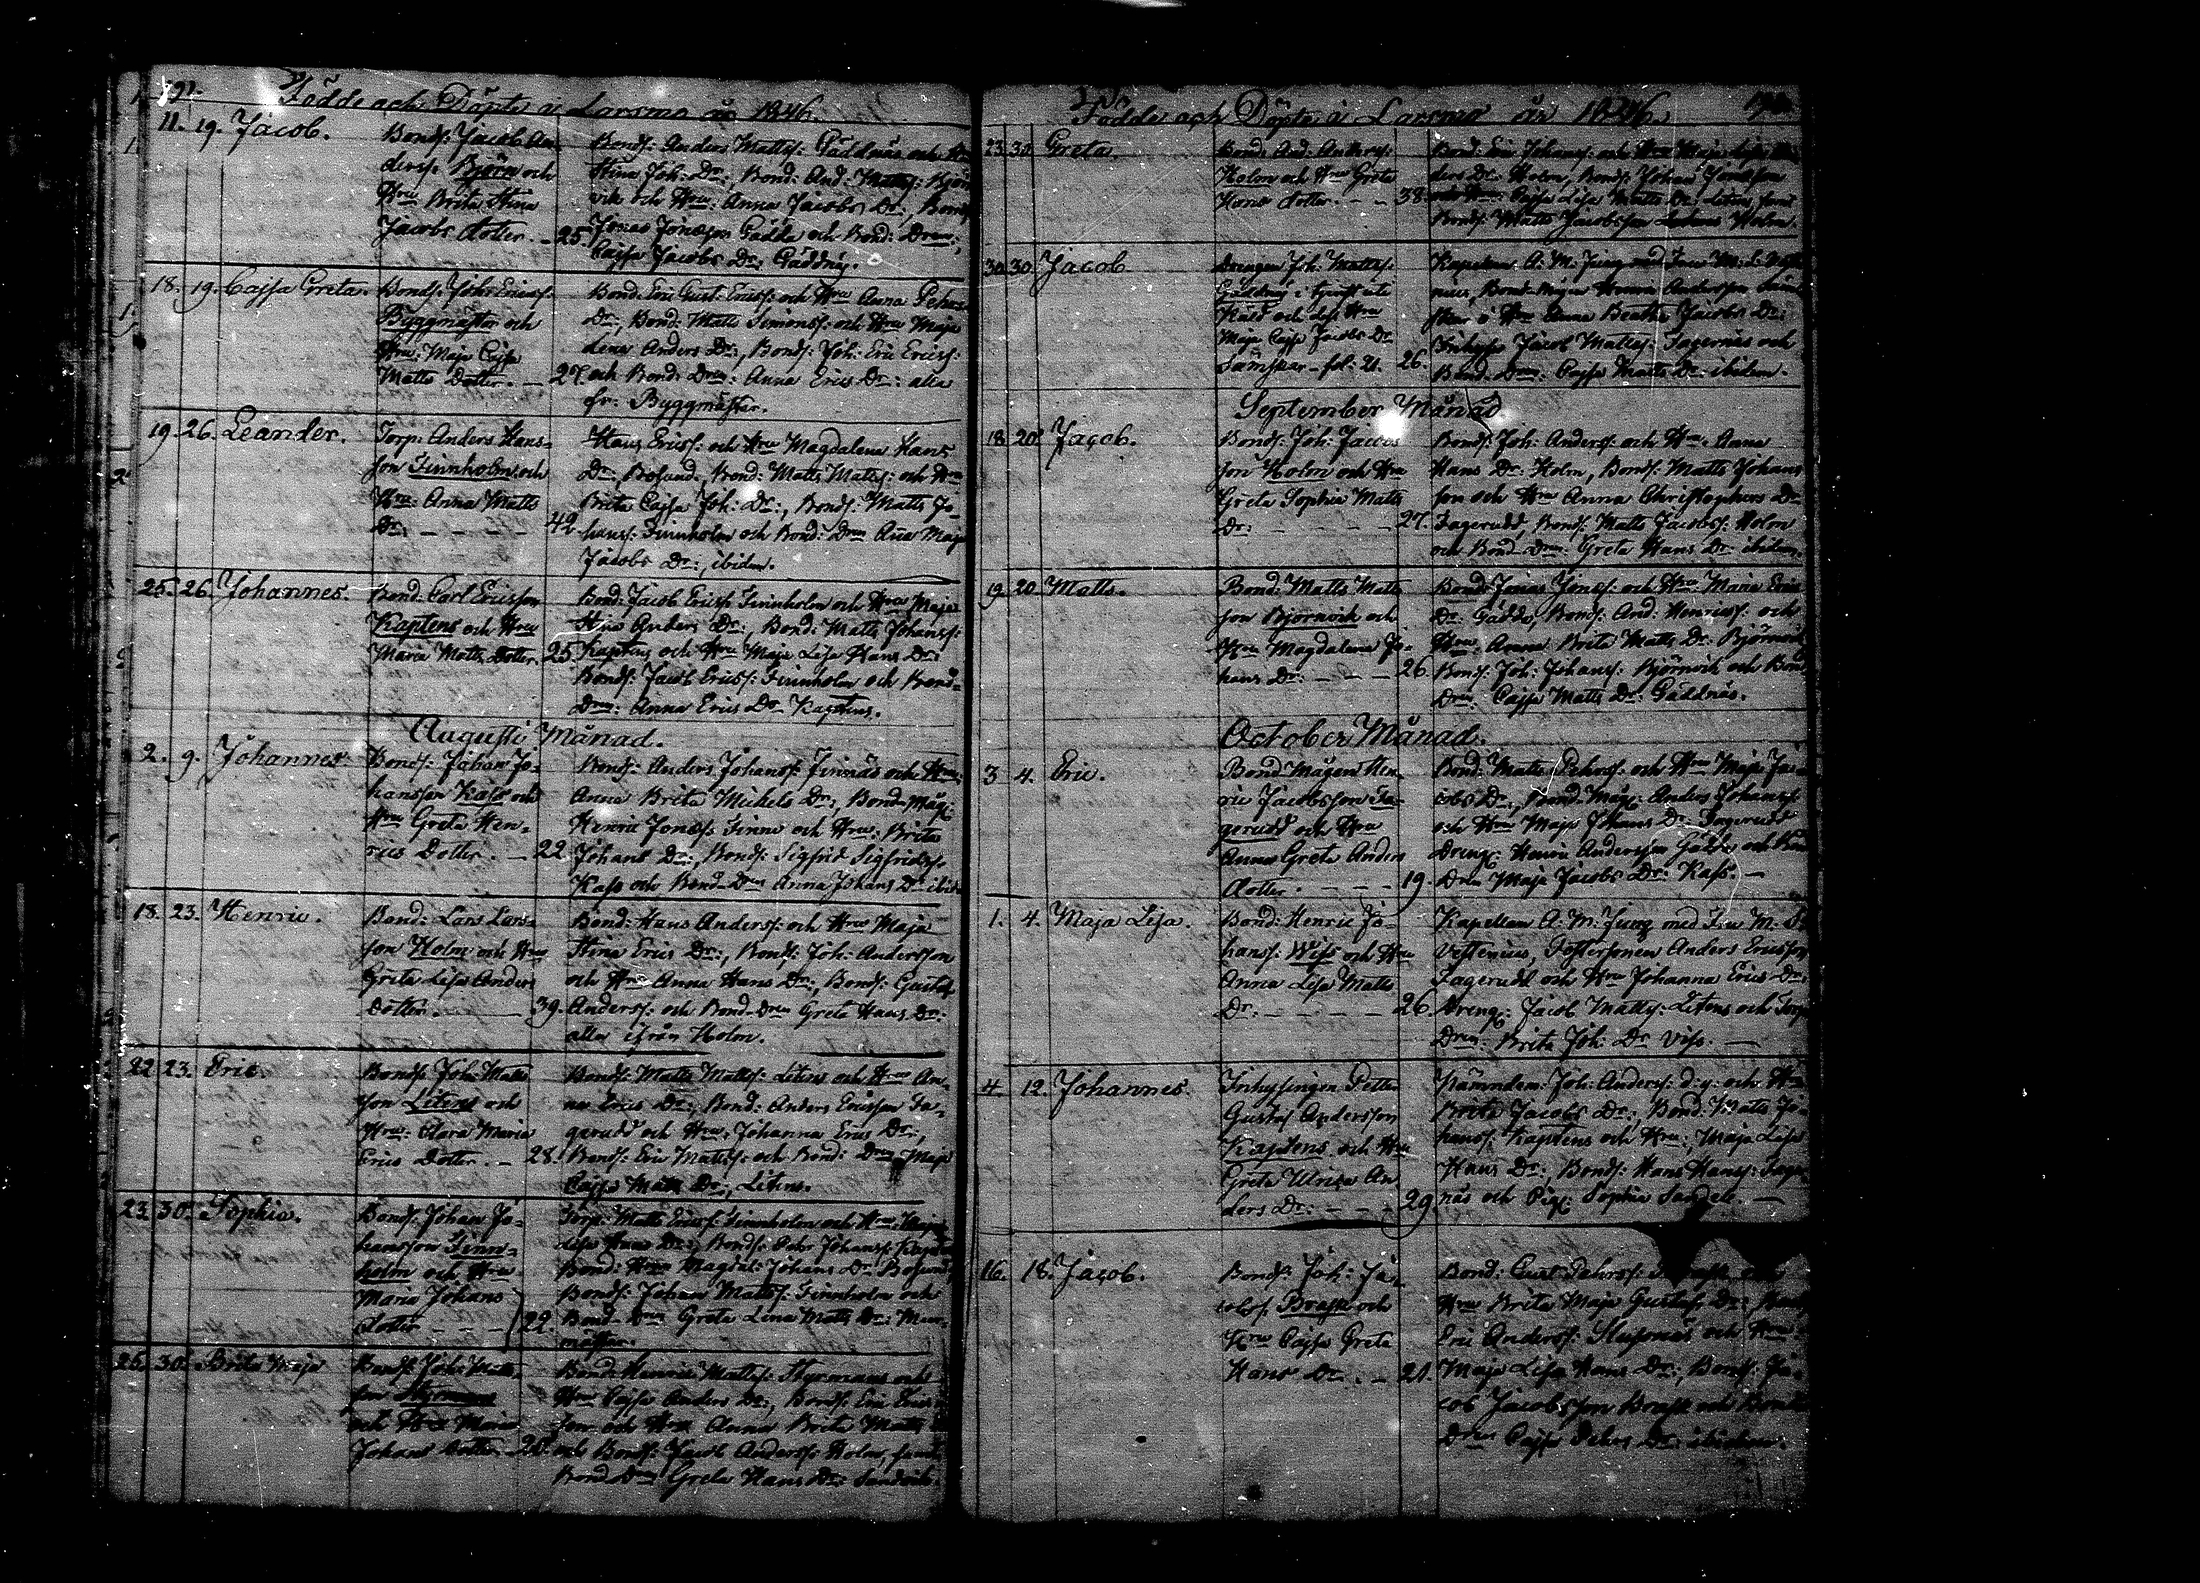 Födde och Döpte i Larsmo år 1846.
11. 19. Jacob.
Bonds: Jacob An
derss. Björn och
Hru Brita Stina
Jacobs dotter. 25.
Bonds: Anders Matts: Gäddnäs och
Stina Joh: Dr:, Bond: And: Matts: Björn
vik och Hru: Anna Jacobs Dr:, Bonds
Jonas Jonsson Gädda och Bond: Drn:
Cajsa Jacobs Dr: Gäddnäs.
18. 19. Cajsa Greta.
Bonds: Joh: Ericss:
Byggmästar och
Hru: Maja Cajsa
Matts Dotter. 27.
Bond: Eric Gust: Ericss: och Hru Anna Pehrs
Dr:, Bond: Matts Simonss: och Hru Maja
Lena Anders Dr:, Bonds: Joh: Eric Ericss:
och Bond: Drn: Anna Erics Dr: alla
fr: Byggmästar.
19. 26. Leander.
Torp: Anders Hans-
son Finnholm och
Hru: Anna Matts
Dr: 42.
Hans Ericss: och Hru Magdalena Hans
Dr: Bosund, Bond: Matts Mattss: och Hru
Brita Cajsa Joh: Dr:, Bonds: Matts Jo-
hanss: Finnholm och Bond: Drn Anna Maja
Jacobs Dr:, ibidem.
25. 26. Johannes.
Bond: Carl Ericsson
Kaptens och Hru
Maria Matts Dotter 25.
Bond: Jacob Ericss: Finnholm och Hru Maja
Stina Anders Dr:, Bond: Matts Johanss:
Kaptens och Hru Maja Lisa Hans Dr:
Bonds: Jacob Ericss: Finnholm och Bond-
Drn: Anna Erics Dr Kaptens.
Augusti Månad.
2. 9. Johannes
Bonds: Johan Jo-
hansson Kass och
Hru Greta Hen-
rics Dotter. 22.
Bonds: Anders Johanss: Finnäs och Hru:
Anna Brita Michels Dr:, Bond-Måg:
Henric Jonss: Finne och Hru: Brita
Johans Dr:, Bonds: Sigfrid Sigfridss:
Kass och Bond-Drn Anna Johans Dr ibid
18. 23. Henric.
Bond: Lars Lars-
son Holm och Hru
Greta Lisa Anders
Dotter. 39.
Bond: Hans Anderss: och Hru Maja
Stina Erics Dr:, Bonds: Joh: Andersson
och Hru Anna Hans Dr:, Bonds: Gustaf
Anderss: och Bond-Drn Greta Hans Dr:
alla ifrån Holm.
22. 23. Eric.
Bonds: Joh: Matts
son Litens och
Hru: Clara Maria
Erics Dotter. 28.
Bonds: Matts Mattss: Litens och Hru An-
na Erics Dr:, Bond: Anders Ericsson Fa-
gerudd och Hru: Johanna Erics Dr:,
Bonds: Eric Mattss: och Bond: Drn Maja
Cajsa Matts Dr:, Litens.
23. 30. Sophia.
Bonds: Johan Jo-
hansson Finn-
holm och Hru
Maria Johans
Dotter 22.
Torp: Matts Ericss: Finnholm och Hru: Maja
Lisa Hans Dr:, Bonds: Pehr Johanss:
Bond: Hru Magdal: Johans Dr Bosund,
Bonds: Johan Mattss: Finnholm och
Bond: Drn Greta Lena Matts Dr:
mästar.
25. 30. Brita Maja
Bonds: Joh: Matts-
son Styrmans
och Hru Maria
Johans Dotter 28.
Bond: Henric Mattss: Styrmans och
Hru Cajsa Anders Dr:, Bonds: Eric Erics
son och Hru Anna Brita Matts
och Bonds: Jacob Anderss: Holm, samt
Bond Drn Greta Hans Dr: Sandvik.
Födde och Döpte i Larsmo år 1846.
23. 30. Greta.
Bond: And: Anderss:
Holm och Hru Greta
Hans dotter. 38.
Bond: Eric Johanss: och Hru Maja Lisa An
ders Dr: Holm, Bonds: Johan Jonsson
och Hru: Cajsa Lisa Matts Dr: Litens, samt
Bonds: Matts Jacobsson Holm.
30. 30. Jacob
Drengen Joh: Mattss:
Gäddnäs i tjenst
Kass och dess Hru
Maja Cajsa Jacobs Dr
Sämskar - fol: 21. 26.
Kapellan A. M. Jung med Fru M: L: Veste
nius, Bond-Mågen Anderson
skar o Hru Anna Beatha Jacobs Dr:
Inhyses Jacob Mattss: Fagernäs och
Bond: Drn: Cajsa Matts Dr: ibidem.
September Månad.
18. 20. Jacob.
Bonds: Joh: Jacobs
son Holm och Hru
Greta Sophia Matts
Dr: 27.
Bonds: Joh: Anderss: och Hru: Anna
Hans Dr: Holm, Bonds: Matts Johans
son och Hru Anna Christophers Dr
Fagerudd, Bonds: Matts Jacobss: Holm
och Bond Drn: Greta Hans Dr: ibidem.
19. 20. Matts.
Bond: Matts Matts
son Björnvik och
Hru Magdalena Jo-
hans Dr: 26.
Bonds: Jonas Jonss: och Hru Maria Erics
Dr: Gädda, Bonds: And: Henricss: och
Hru: Anna Brita Matts Dr: Björnvik
Bonds: Joh: Johanss: Björnvik och Bond
Drn: Cajsa Matts Dr: Gäddnäs.
October Månad.
3. 4. Eric.
Bond Mågen Hen-
ric Jacobsson Fa-
gerudd och Hru
Anna Greta Anders
dotter. 19.
Bond: Matts Pehrss: och Hru Maja Ja-
cobs Dr:, Bond-Måg: Anders Johanss:
och Hru Maja Johans Dr: Fagerudd
Dreng: Henric Andersson Gädda och
Drn Maja Jacobs Dr: Kass.
1. 4. Maja Lisa.
Bond: Henric Jo-
hanss: Wiss och Hru
Anna Lisa Matts
Dr: 26.
Kapellan A: M: Jung med Fru M: L:
Vestenius, Fostersonen Anders Ericsson
Fagerudd och Hru Johanna Erics Dr:
Dreng: Jacob Mattss: Litens och Torp
Drn: Brita Joh: Dr: Viss.
4. 12. Johannes.
Inhysingen Petter
Gustaf Andersson
Kaptens och Hru
Greta Ulrica An
ders Dr: 29.
Nämndem: Joh: Anderss: d: y: och Hru
Brita Jacobs Dr:, Bond: Matts Jo-
hanss: Kaptens och Hru: Maja Lisa
Hans Dr:, Bonds: Hans Hanss: Fager
näs och Pig: Sophia Sandell.
16. 18. Jacob.
Bonds: Joh: Ja-
cobss: Brask och
Hru Cajsa Greta
Hans Dr: 21.
Bond: Gust: Pehrss:
Hru Brita Maja Gustafs Dr:,
Eric Anderss: Slussnäs och Hru
Maja Lisa Hans Dr:, Bonds: Ja-
cob Jacobsson Brask och Bond
Drn Cajsa Pehrs Dr: ibidem.